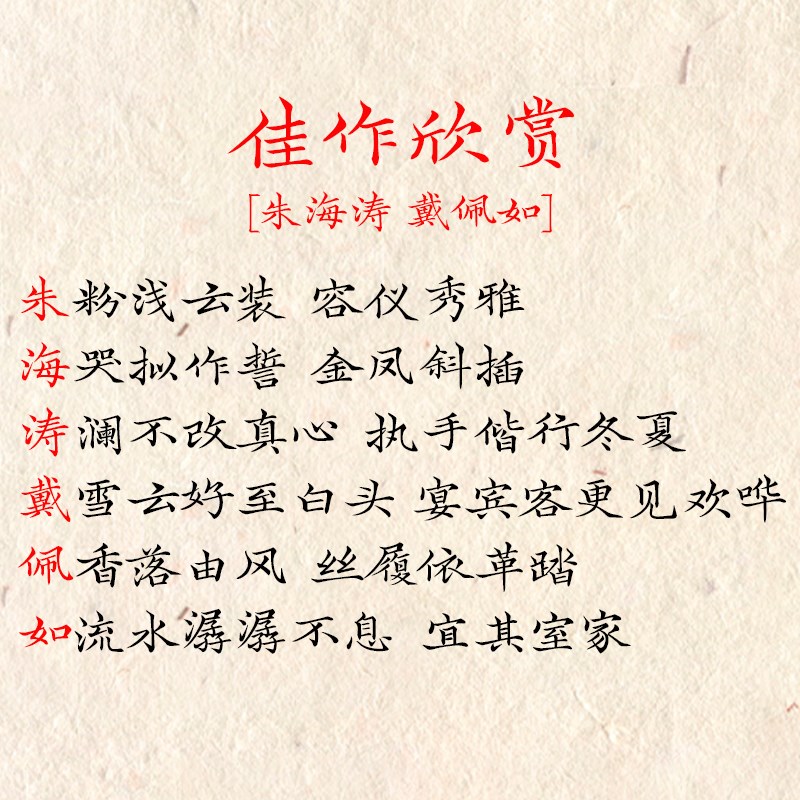 佳作欣赏
[朱海涛 戴佩如]
朱粉浅云装 容仪秀雅
海哭拟作誓 金凤斜插
涛澜不改真心 执手偕行冬夏
戴雪云好至白头 宴宾客更见欢哗
佩香落由风 丝履依革踏
如流水潺潺不息 宜其室家